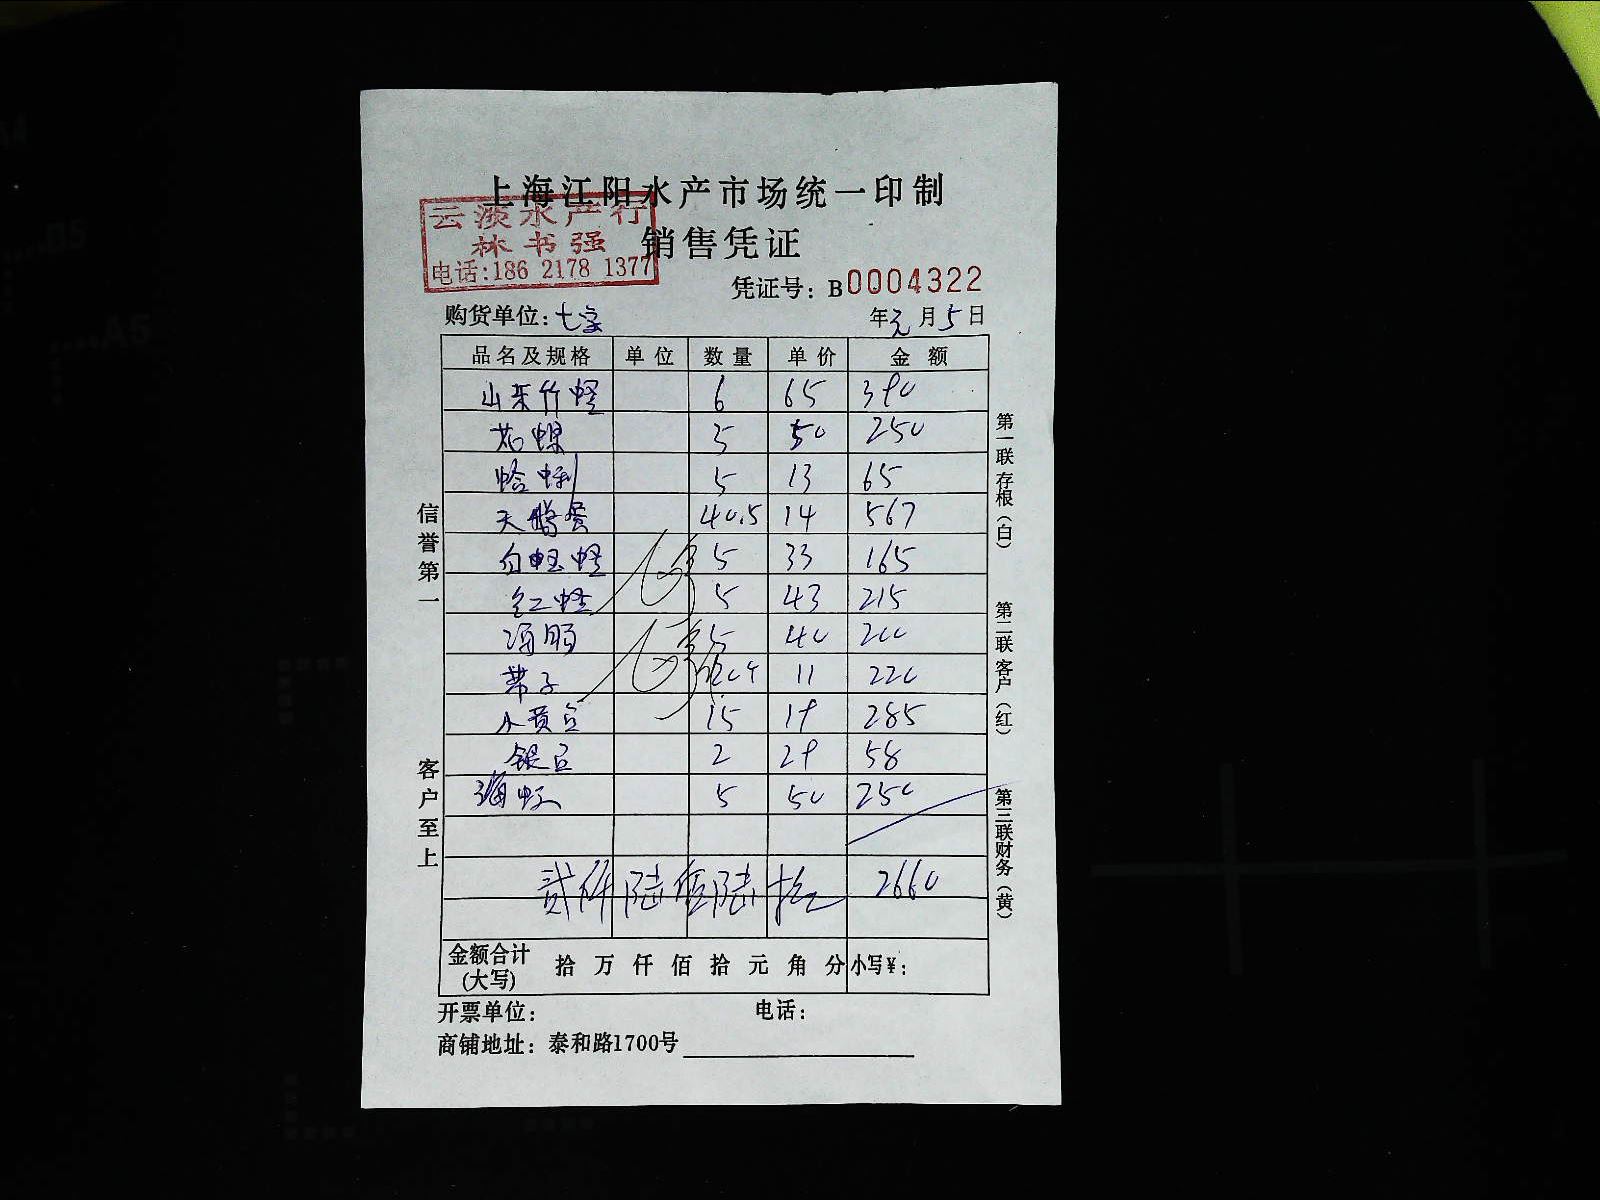 上海江阳水产市场统一印制
云淡水产行
林书强
电话:186 2178 1377
销售凭证
凭证号: B0004322
购货单位: 七宝
年 元 月 5 日
品名及规格 单位 数量 单价 金额
山东竹蛏 6 65 390
花螺 5 50 250
蛤蜊 5 13 65
天鹅蛋 40.5 14 567
白玉蛏 5 33 165
红蛏 5 43 215
海肠 5 40 200
带子 20个 11 220
小黄豆 15 19 285
银豆 2 29 58
海虹 5 50 250
贰仟陆佰陆拾 2660
金额合计(大写) 拾 万 仟 佰 拾 元 角 分 小写¥:
开票单位: 电话:
商铺地址: 泰和路1700号
信誉第一
客户至上
第一联存根(白)
第二联客户(红)
第三联财务(黄)